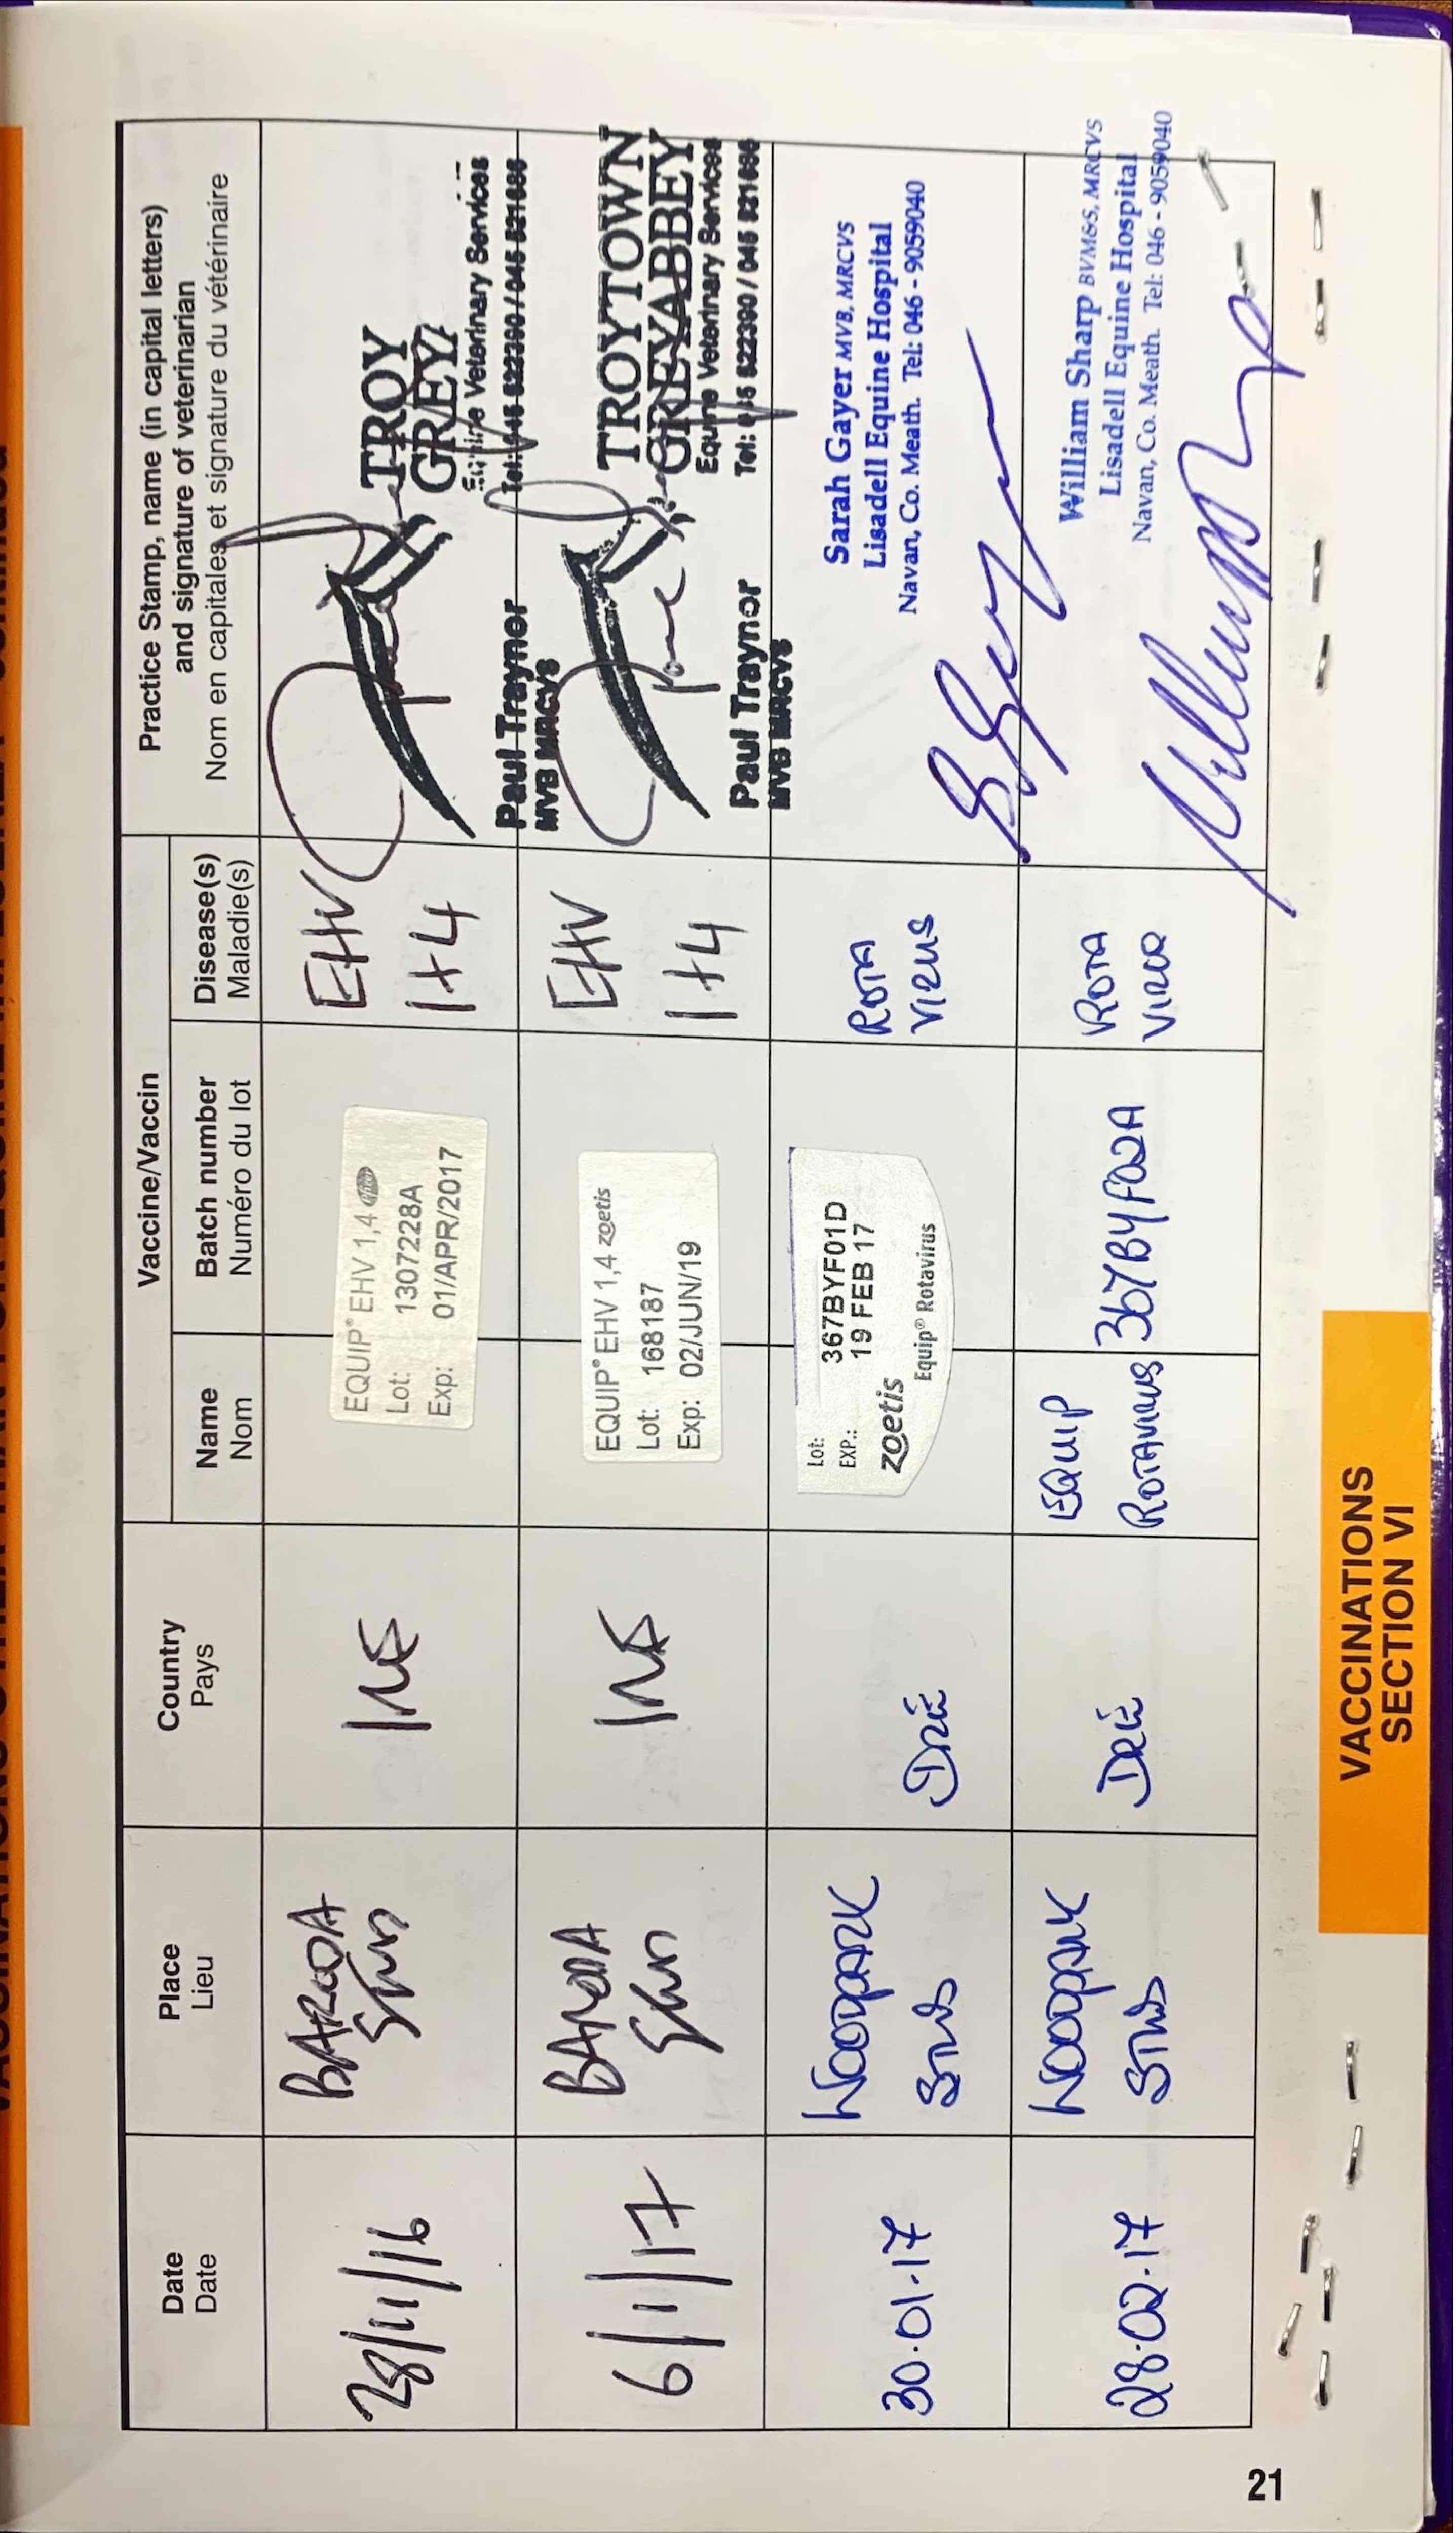 Date
Date
Place
Lieu
Country
Pays
Vaccine/Vaccin
Name
Nom
Batch number
Numéro du lot
Disease(s)
Maladie(s)
Practice Stamp, name (in capital letters)
and signature of veterinarian
Nom en capitales et signature du vétérinaire
28/11/16
BARODA
Stud
IRE
EQUIP® EHV 1,4
Lot: 1307228A
Exp: 01/APR/2017
EHV
1+4
TROY
GREY
Equine Veterinary Services
Tel: 045 522390 / 045 521686
Paul Traynor
MVB MRCVS
6/1/17
BARODA
Stud
IRE
EQUIP® EHV 1,4 zoetis
Lot: 168187
Exp: 02/JUN/19
EHV
1+4
TROYTOWN
GREYABBEY
Equine Veterinary Services
Tel: 045 522390 / 045 521686
Paul Traynor
MVB MRCVS
30.01.17
WOODPARK
STUD
IRE
Lot: 367BYF01D
EXP.: 19 FEB 17
zoetis
Equip® Rotavirus
ROTA
VIRUS
Sarah Gayer MVB, MRCVS
Lisadell Equine Hospital
Navan, Co. Meath. Tel: 046 - 9059040
28.02.17
WOODPARK
STUD
IRE
EQUIP
ROTAVIRUS
367BYF02A
ROTA
VIRUS
William Sharp BVM&S, MRCVS
Lisadell Equine Hospital
Navan, Co. Meath. Tel: 046 - 9059040
21
VACCINATIONS
SECTION VI